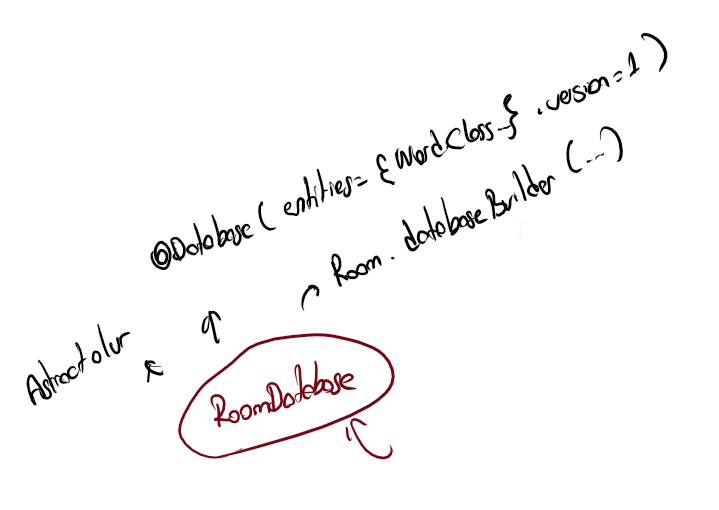 @Database( entities= {WordClass} , version=1 )
Room. databaseBuilder (...)
Abstract olur
RoomDatabase